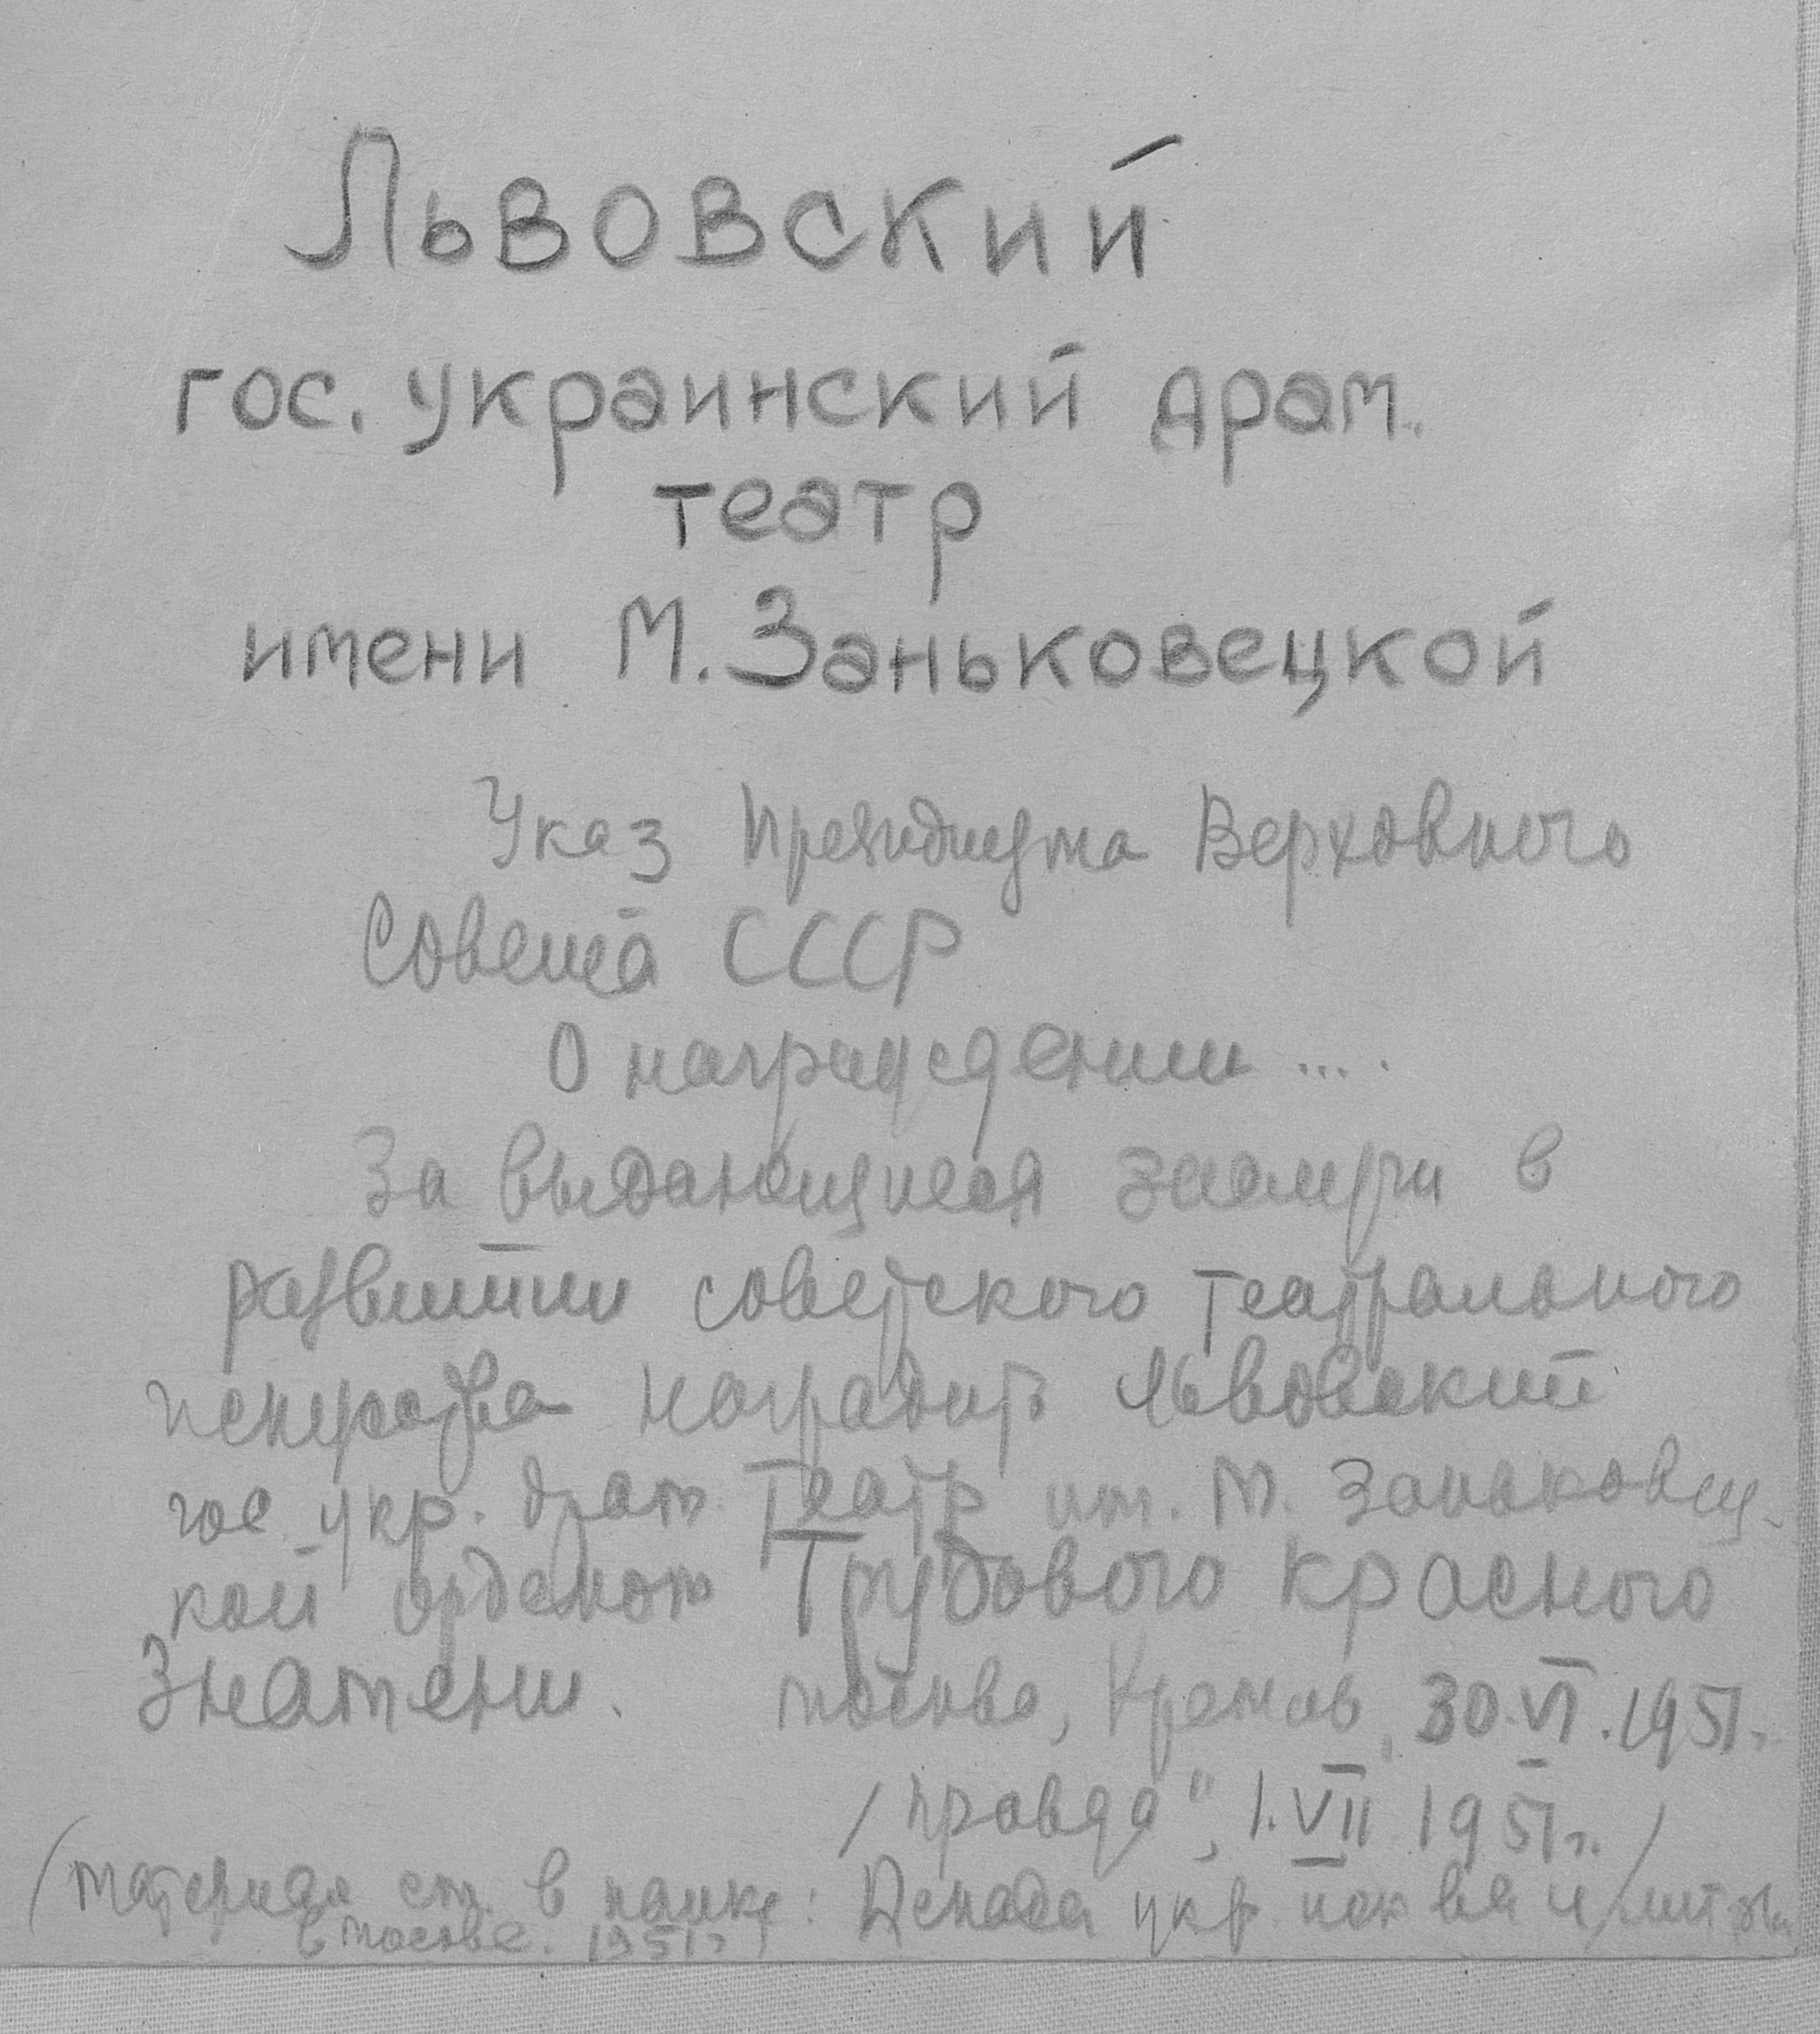 Львовский
гос. украинский драм.
театр
имени М. Заньковецкой
Указ Президиума Верховного
Совета СССР
О награждении ....
За выдающиеся заслуги в
развитии советского театрального
искусства наградить Львовский
гос. укр. драм. театр им. М. Заньковец-
кой орденом Трудового Красного
Знамени. Москва, Кремль, 30.VI.1951г.
/Правда", 1.VII 1951г./
(Материал см. в папке: Декада укр. иск ва и лит ры
в Москве. 1951г)